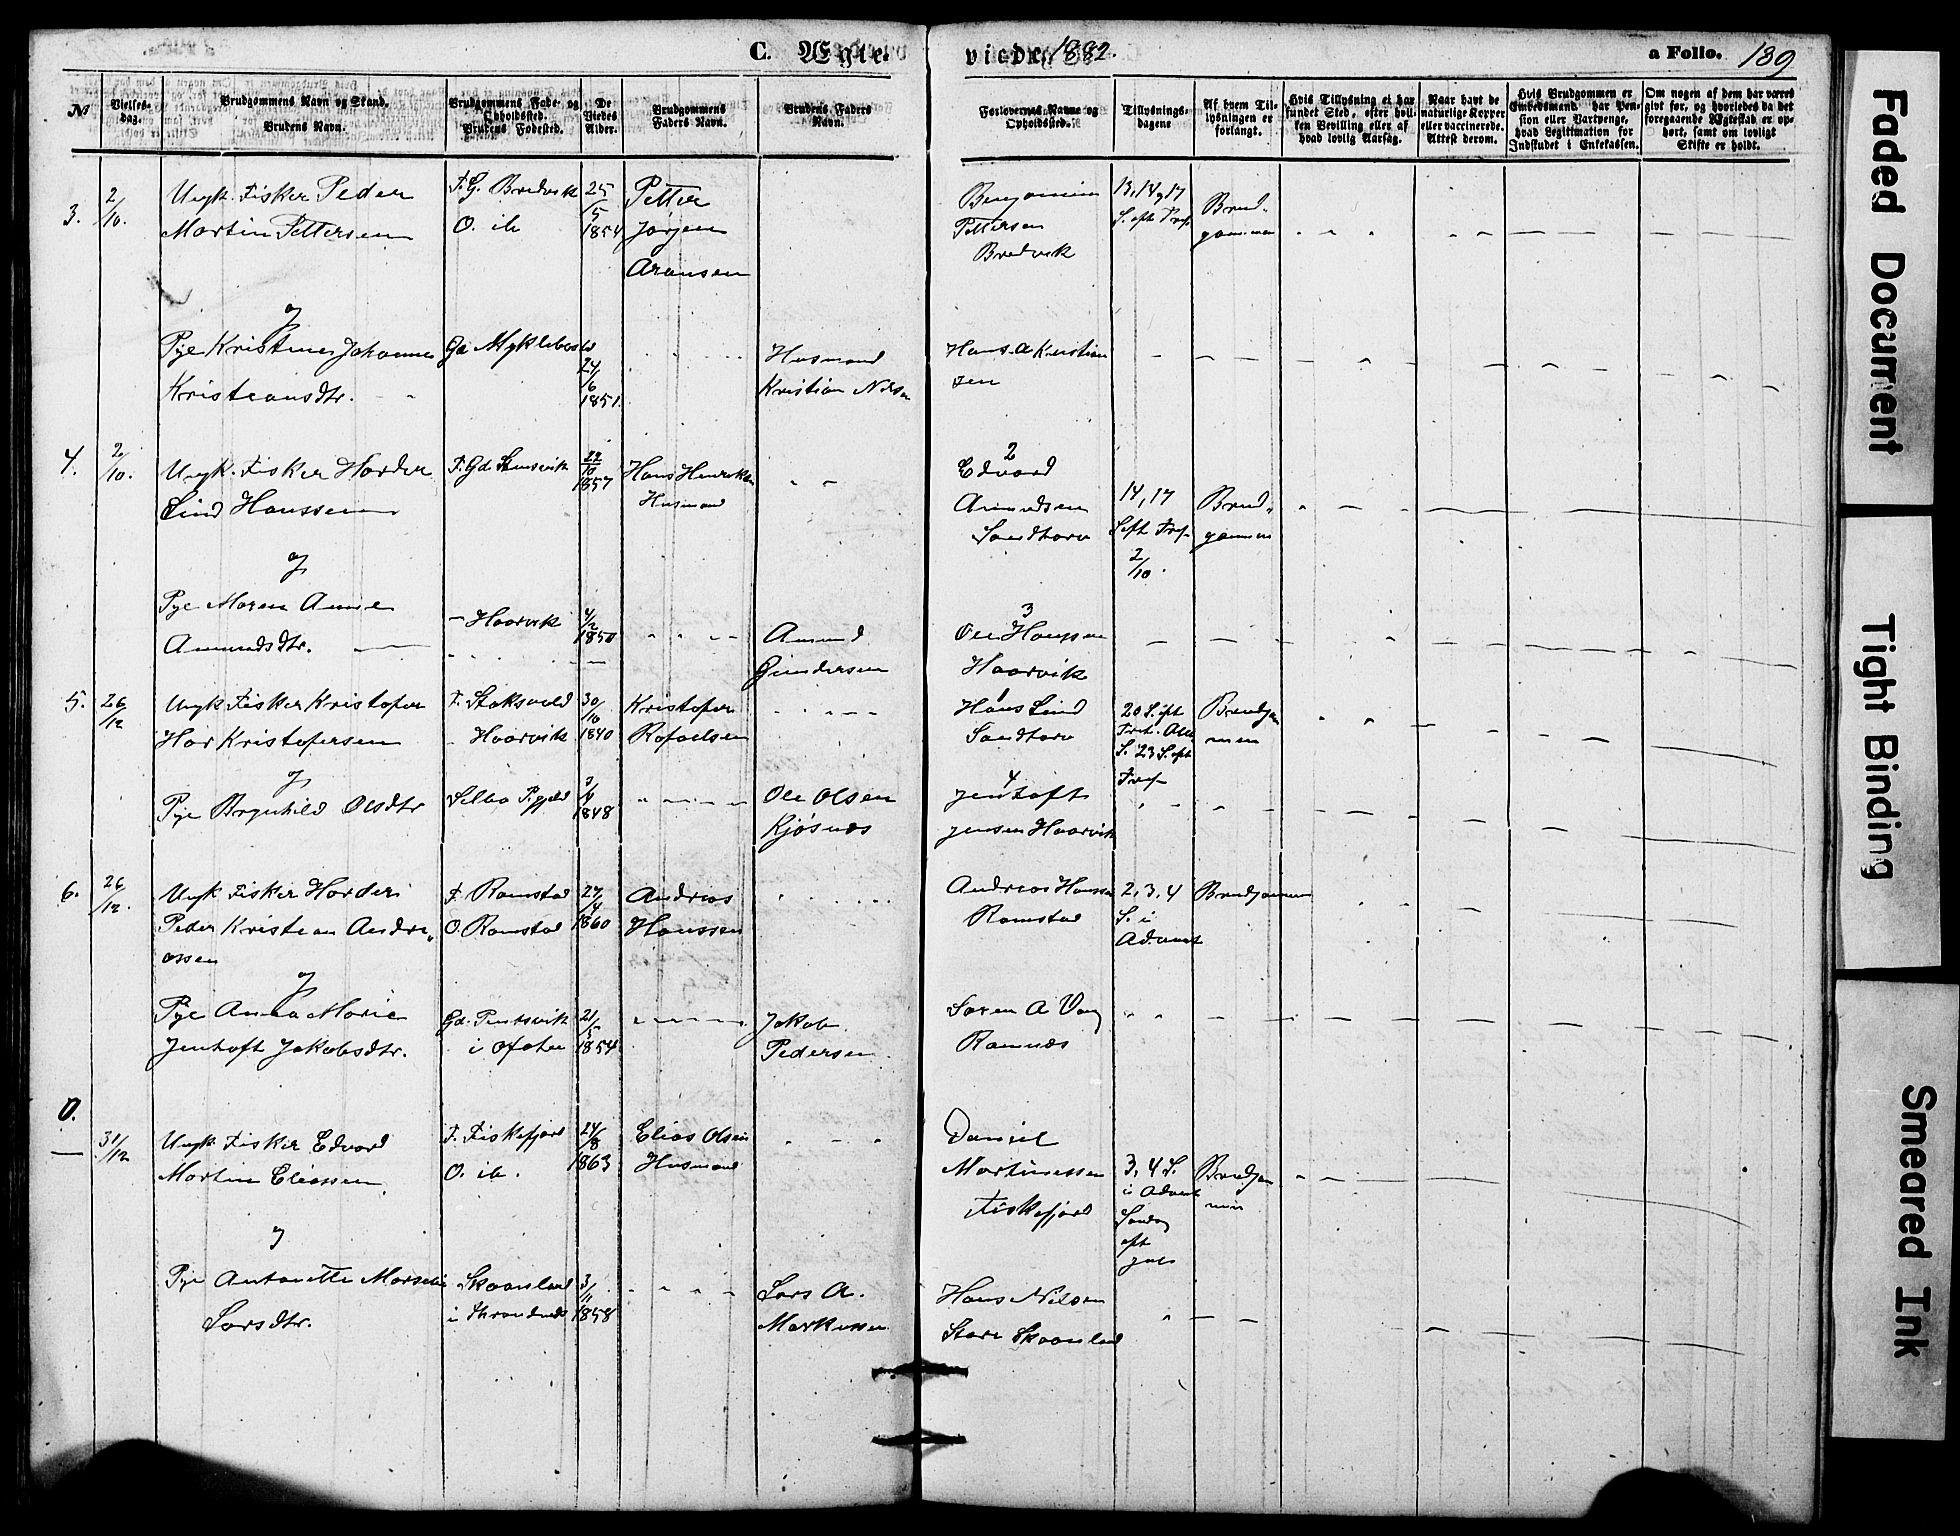 C. Ægte-
viede 1882.
a Folio. 139
№
Vielses-
dag.
Brudgommens Navn og Stand.
Brudens Navn.
Brudgommens Føde- og
Opholdssted.
Brudens Fødested.
De
Viedes
Alder.
Brudgommens
Faders Navn.
Brudens Faders
Navn.
Forlovernes Navne og
Opholdssted.
Tillysnings-
dagene
Af hvem Til-
lysningen er
forlangt.
Hvis Tillysning ei har
fundet Sted, efter hvil-
ken Bevilling eller af
hvad lovlig Aarsag.
Naar havt de
naturlige Kopper
eller vaccinerede.
Attest derom.
Hvis Brudgommen er
Embedsmand, har Pen-
sion eller Vartpenge,
hvad Legitimation for
Indskudet i Enkekassen.
Om nogen af dem har været
gift før, og hvorledes da det
foregaaende Ægteskab er op-
hørt, samt om lovligt
Skifte er holdt.
3.
2/10.
Ungk. Fisker Peder
Martin Pettersen
F. G. Bredvik
O. ib
25/5
1854
Petter
Jørgen
Aronsen
Benjamin
Pettersen
Bredvik
13, 14, 17
S. eft Tref
Brud-
gommen
og
Pige Kristine Johanna
Kristiansdtr.
Gd Myklebost
24/6
1851.
Husmand
Kristian Nilsen
Hans A Kristian
sen
4.
2/10.
Ungk. Fisker Hårder
Lind Hanssen
F. Gd
22/10
1857
Hans Henriksen
Husmand
2
Edvard
Amundsen
Sandtorv
14, 17
Seft Tref
2/10.
Brud-
gommen
og
Pige Maren Anna
Amundsdtr.
Haarvik
4/2
1850
Amund
Gundersen
3
Ole Hanssen
Haarvik
5.
26/12
Ungk Fisker Kristofer
Har Kristofersen
F. Stoksvold
Haarvik
30/10
1840
Kristofer
Rafaelsen
1
Hans Lind
Sandtorv
20 S. eft
Tref.
S. 23 S. eft
Tref
Brudgom
men
og
Pige Brynhild Olsdtr
Selbo Pgjeld
1848
Ole Olsen
Kjøsnæs
4
Jentoft
Jensen Haarvik
6.
26/12.
Ungk Fisker Hårder
Peder Kristian Andre-
assen
F. Ramstad
O. Ramstad
27/4
1860
Andreas
Hanssen
Andreas Hanssen
Ramstad
2, 3, 4
S. i
Advent
Brudgommen
og
Pige Anna Marie
Jentoft Jakobsdtr.
i Ofoten
21/5
1854
Jakob
Pedersen
Søren A Vang
Ramnæs
0.
31/12
Ungk Fisker Edvard
Martin Eliassen
F. Fiskefjord
O. ib.
24/8
1863
Elias Olsen
Husmand
Daniel
Martinussen
Fiskefjord
3, 4 S.
i Advent
Søndag
eft
Jul
Brudgom
men
og
Pige Antonette
Larsdtr.
Skaanland
i Throndenes
3/11
1858
Lars A.
Markussen
Hans Nilsen
Store Skaanland
Faded Document
Tight Binding
Smeared Ink